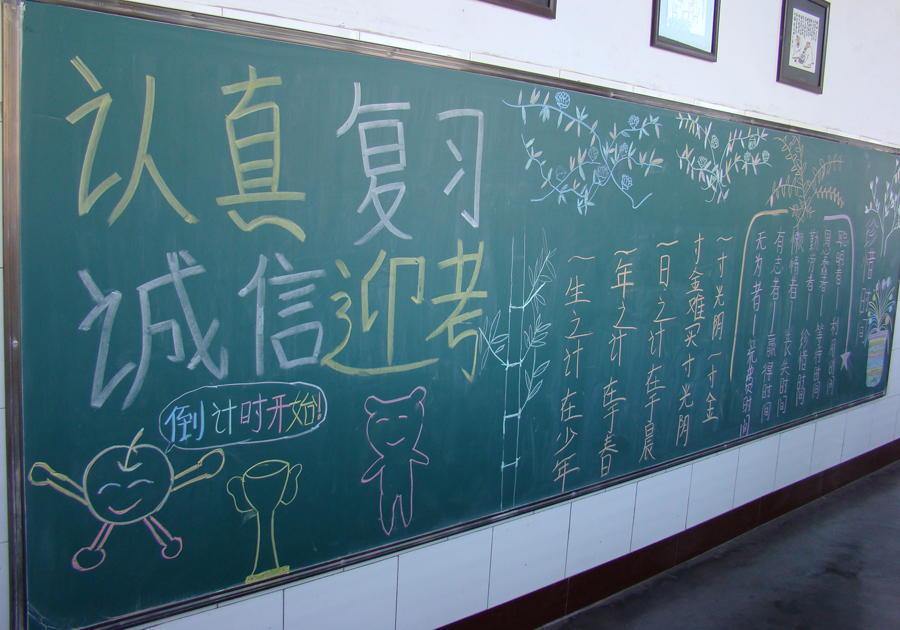 认真复习
诚信迎考
倒计时开始!
一寸光阴一寸金
寸金难买寸光阴
一日之计在于晨
一年之计在于春
一生之计在少年
珍惜时间
聪明者——利用时间
愚蠢者——等待时间
勤劳者——珍惜时间
懒惰者——丧失时间
有志者——赢得时间
无为者——费时间